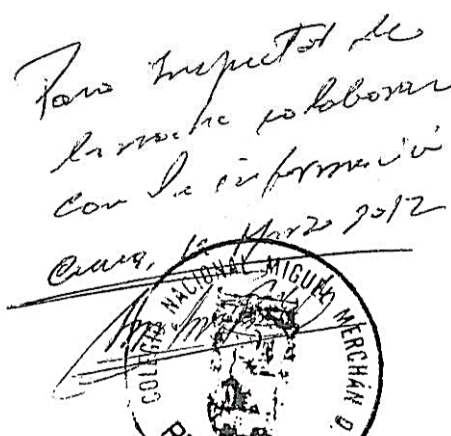 Para Inspector de
la noche colaborar
con la información
Cuenca, Marzo 2012
COLEGIO NACIONAL MIGUEL MERCHÁN O.